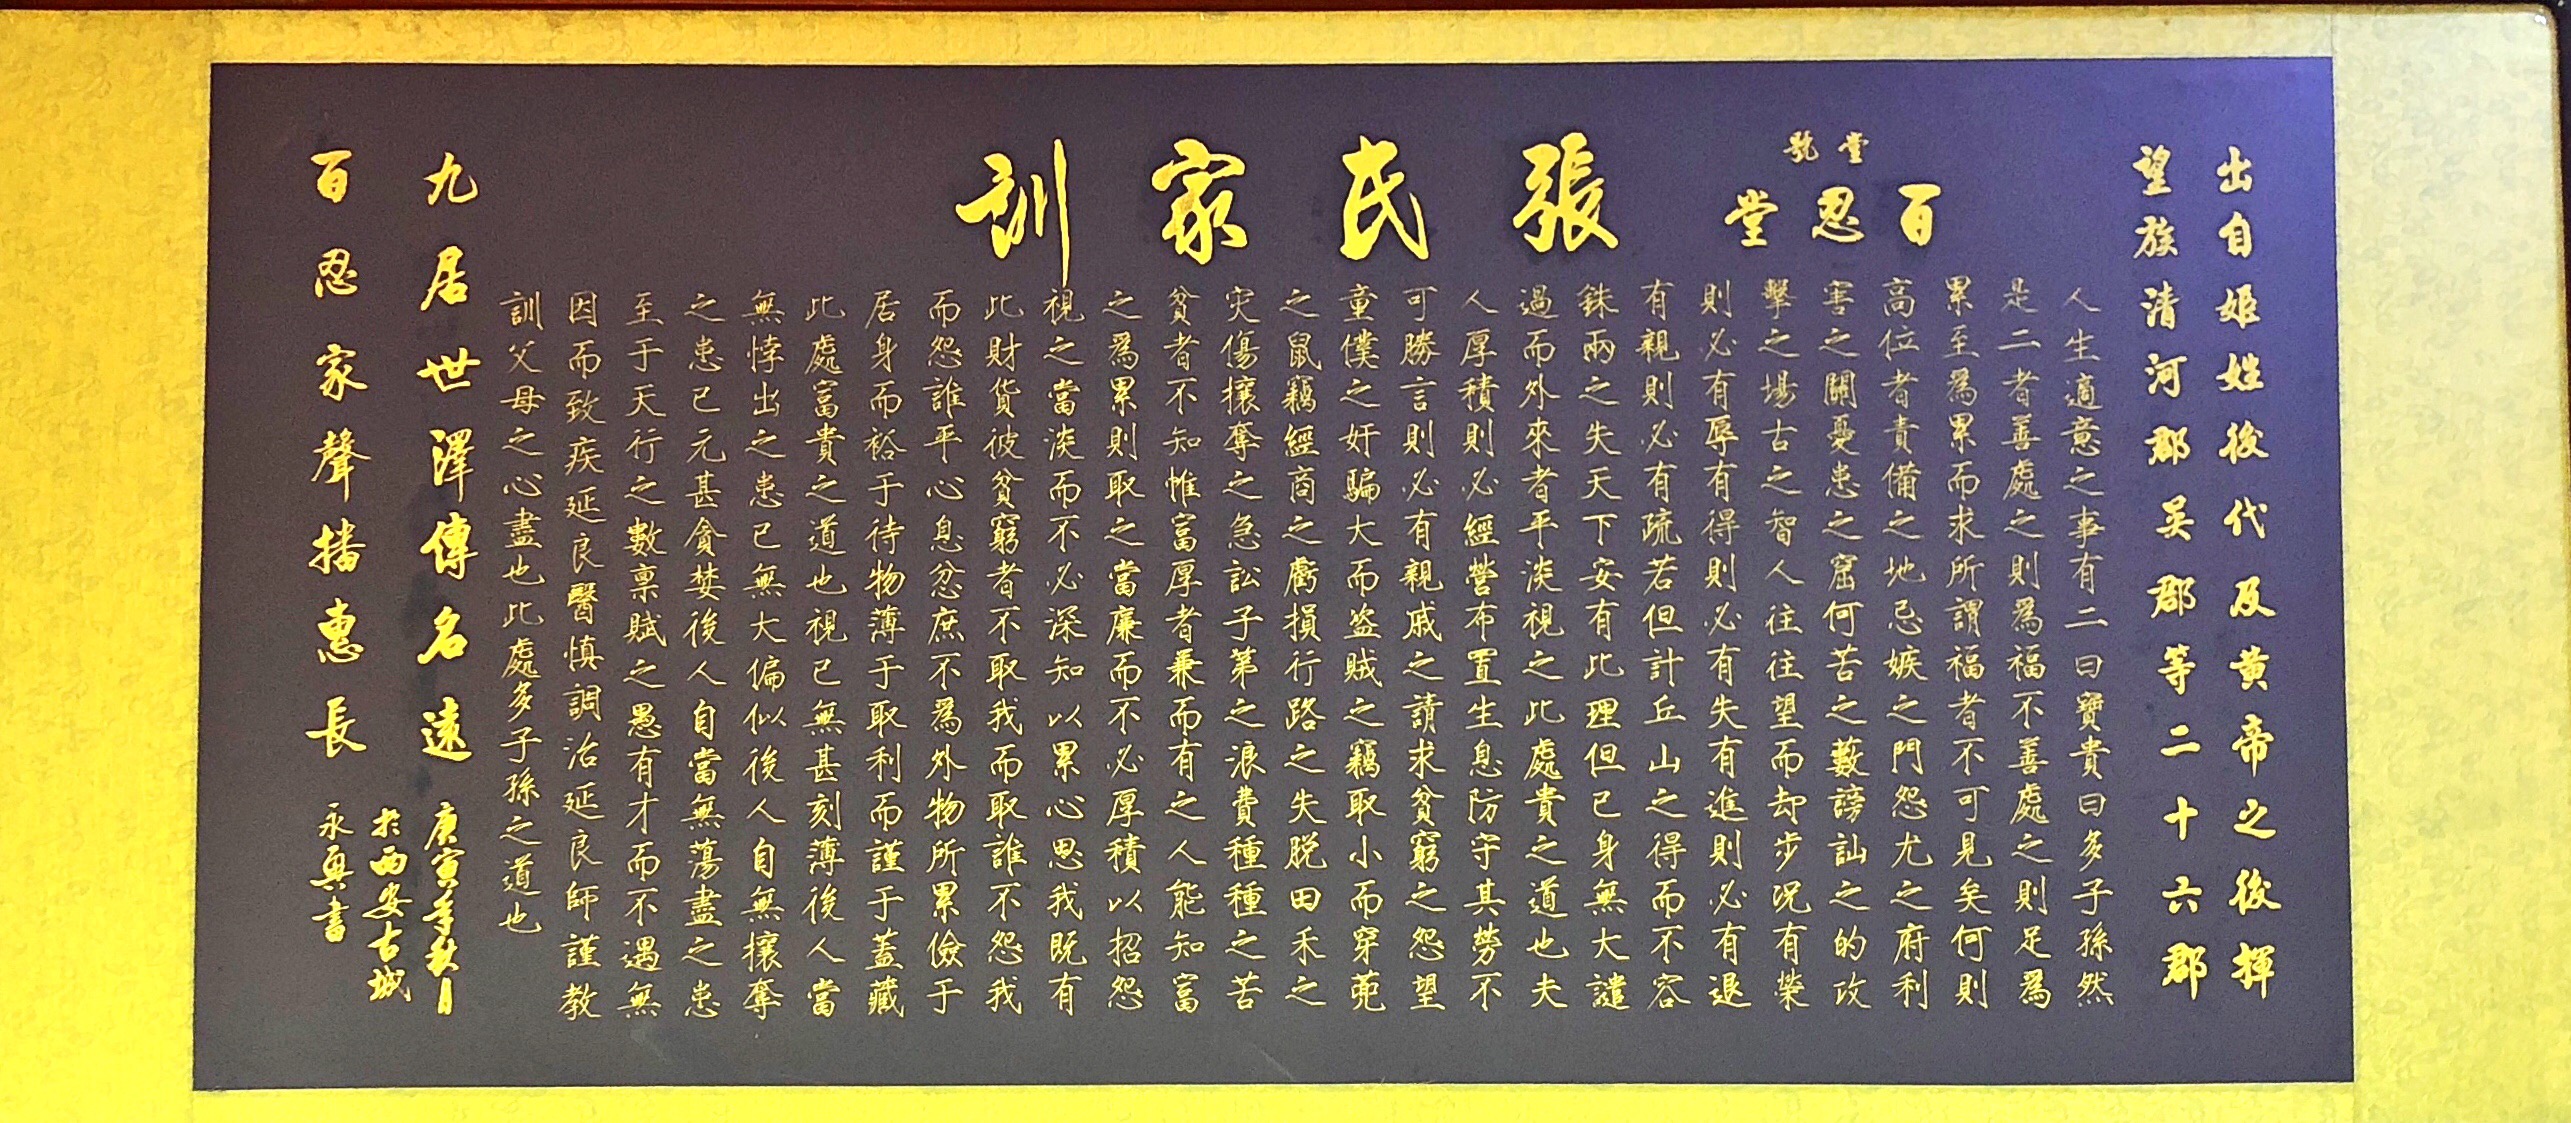 出自姬姓後代及黄帝之後揮
望族清河郡吴郡等二十六郡
堂號
百忍堂
張氏家訓
人生適意之事有二曰寶貴曰多子孫然
是二者善處之則爲福不善處之則足爲
累至爲累而求所謂福者不可見矣何則
高位者責備之地忌嫉之門怨尤之府利
害之關憂患之窟何苦之藪謗訕之的攻
擊之場古之智人往往望而却步况有榮
則必有辱有得則必有失有進則必有退
有親則必有疏若但計丘山之得而不容
銖兩之失天下安有此理但已身無大譴
過而外來者平淡視之此處貴之道也夫
人厚積則必經營布置生息防守其勞不
可勝言則必有親戚之請求貧窮之怨望
童僕之奸騙大而盗賊之竊取小而穿窬
之鼠竊經商之虧損行路之失脱田禾之
灾傷攘奪之急訟子第之浪費種種之苦
貧者不知惟富厚者兼而有之人能知富
之爲累則取之當廉而不必厚積以招怨
視之當淡而不必深知以累心思我既有
此財貨彼貧窮者不取我而取誰不怨我
而怨誰平心息忿庶不爲外物所累儉于
居身而裕于待物薄于取利而謹于蓋藏
此處富貴之道也視已無甚刻薄後人當
無悖出之患已無大偏似後人自無攘奪
之患已元甚貪婪後人自當無蕩盡之患
至于天行之數禀賦之愚有才而不遇無
因而致疾延良醫慎調治延良師謹教
訓父母之心盡也此處多子孫之道也
九居世澤傳名遠
百忍家聲播惠長
庚寅年秋月
於西安古城
永興書